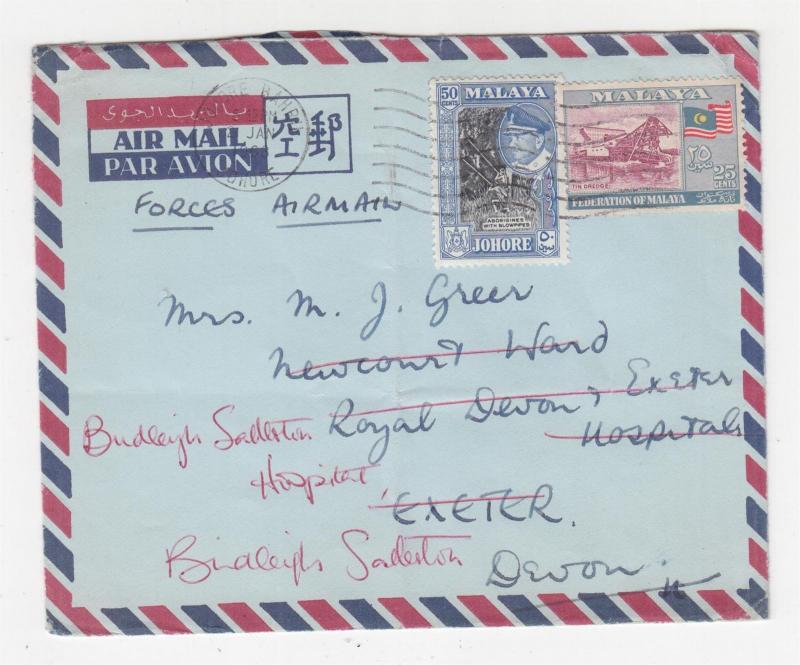 بالبريد الجوى
AIR MAIL
PAR AVION
空郵
JAN
JOHORE
FORCES AIRMAIL
50 CENTS
MALAYA
ABORIGINES
WITH BLOWPIPES
JOHORE
٥٠
سين
MALAYA
٢٥
سين
25
CENTS
TIN DREDGE
FEDERATION OF MALAYA
Mrs. M. J. Greer
Newcourt Ward
Royal Devon & Exeter
Hospitals
Budleigh Salterton
Hospital
EXETER.
Budleigh Salterton
Devon.